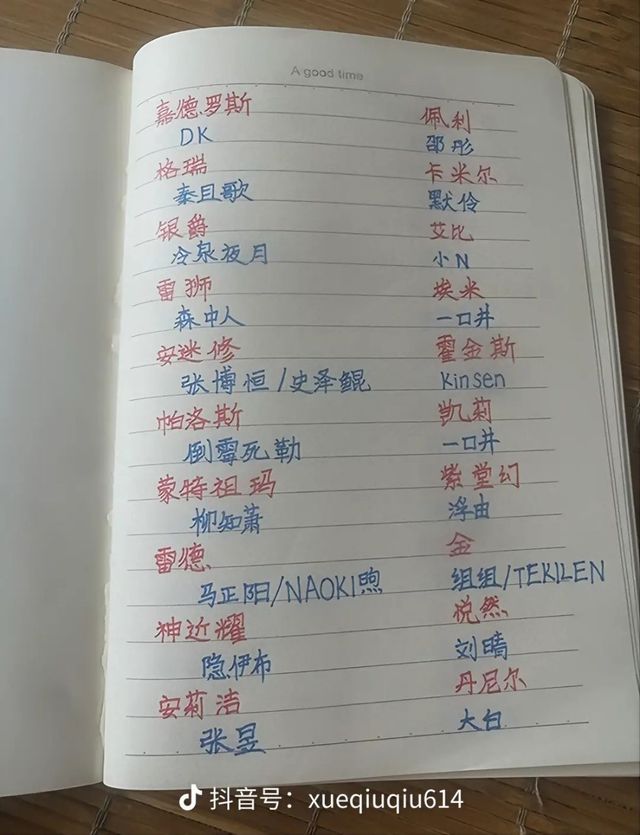 A good time
嘉德罗斯
DK
格瑞
秦且歌
银爵
冷泉夜月
雷狮
森中人
安迷修
张博恒/史泽鲲
帕洛斯
倒霉死勒
蒙特祖玛
柳知萧
雷德
马正阳/NAOKI煦
神近耀
隐伊布
安莉洁
张昱
佩利
邵彤
卡米尔
默伶
艾比
小N
埃米
一口井
霍金斯
Kinsen
凯莉
一口井
紫堂幻
浮由
金
组组/TEKILEN
悦然
刘晴
丹尼尔
大白
抖音号：xueqiuqiu614